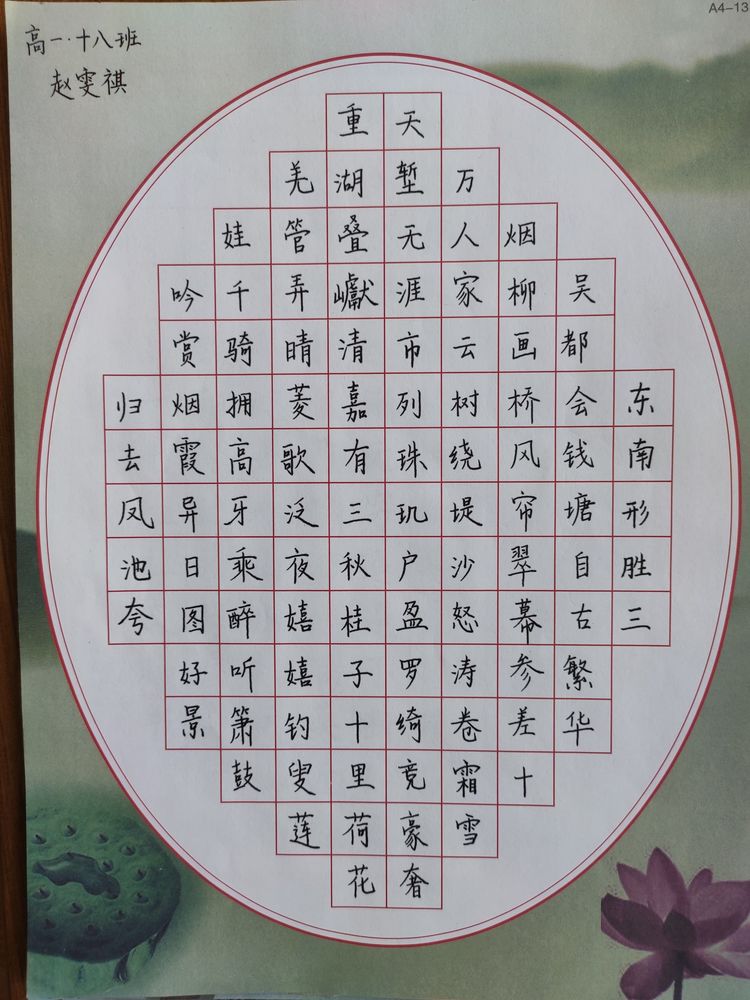 A4-13
高一·十八班
赵雯祺
东南形胜三
吴都会钱塘自古繁华
烟柳画桥风帘翠幕参差十
万人家云树绕堤沙怒涛卷霜雪
天堑无涯市列珠玑户盈罗绮竞豪奢
重湖叠巘清嘉有三秋桂子十里荷花
羌管弄晴菱歌泛夜嬉嬉钓叟莲
娃千骑拥高牙乘醉听箫鼓
吟赏烟霞异日图好景
归去凤池夸